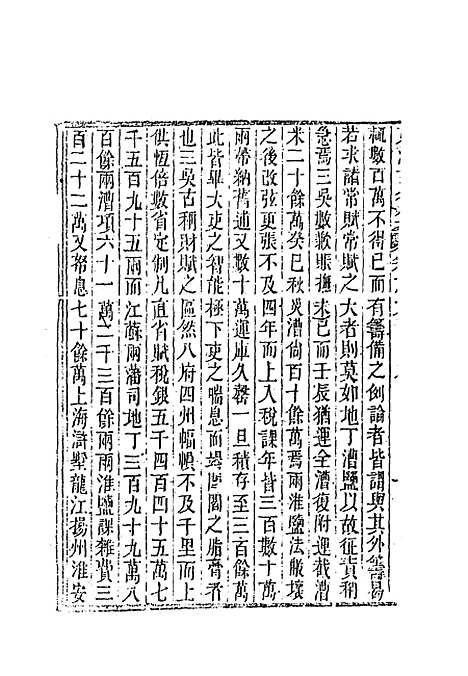 輒數百萬不得已而有籌備之例論者皆謂與其外籌曷
若求諸常賦常賦之大者則莫如地丁漕鹽以故征責稍
急焉三吳數歉賑撫未已而壬辰猶運全漕復附運截漕
米二十餘萬癸巳秋災漕尚百十餘萬焉兩淮鹽法敝壞
之後改弦更張不及四年而上入稅課年皆三百數十萬
兩帶納舊逋又數十萬運庫久罄一旦積存至三百餘萬
此皆畢大吏之智能極下吏之喘息而竭閭閻之脂膏者
也三吳古稱財賦之區然八府四州幅幀不及千里而上
供恆倍數省定制九直省賦稅銀五千四百四十五萬七
千五百九十五兩而江蘇兩藩司地丁三百九十九萬八
百餘兩漕項六十一萬二千三百餘兩兩淮鹽課雜費三
百二十二萬又帑息七十餘萬上海滸墅龍江揚州淮安